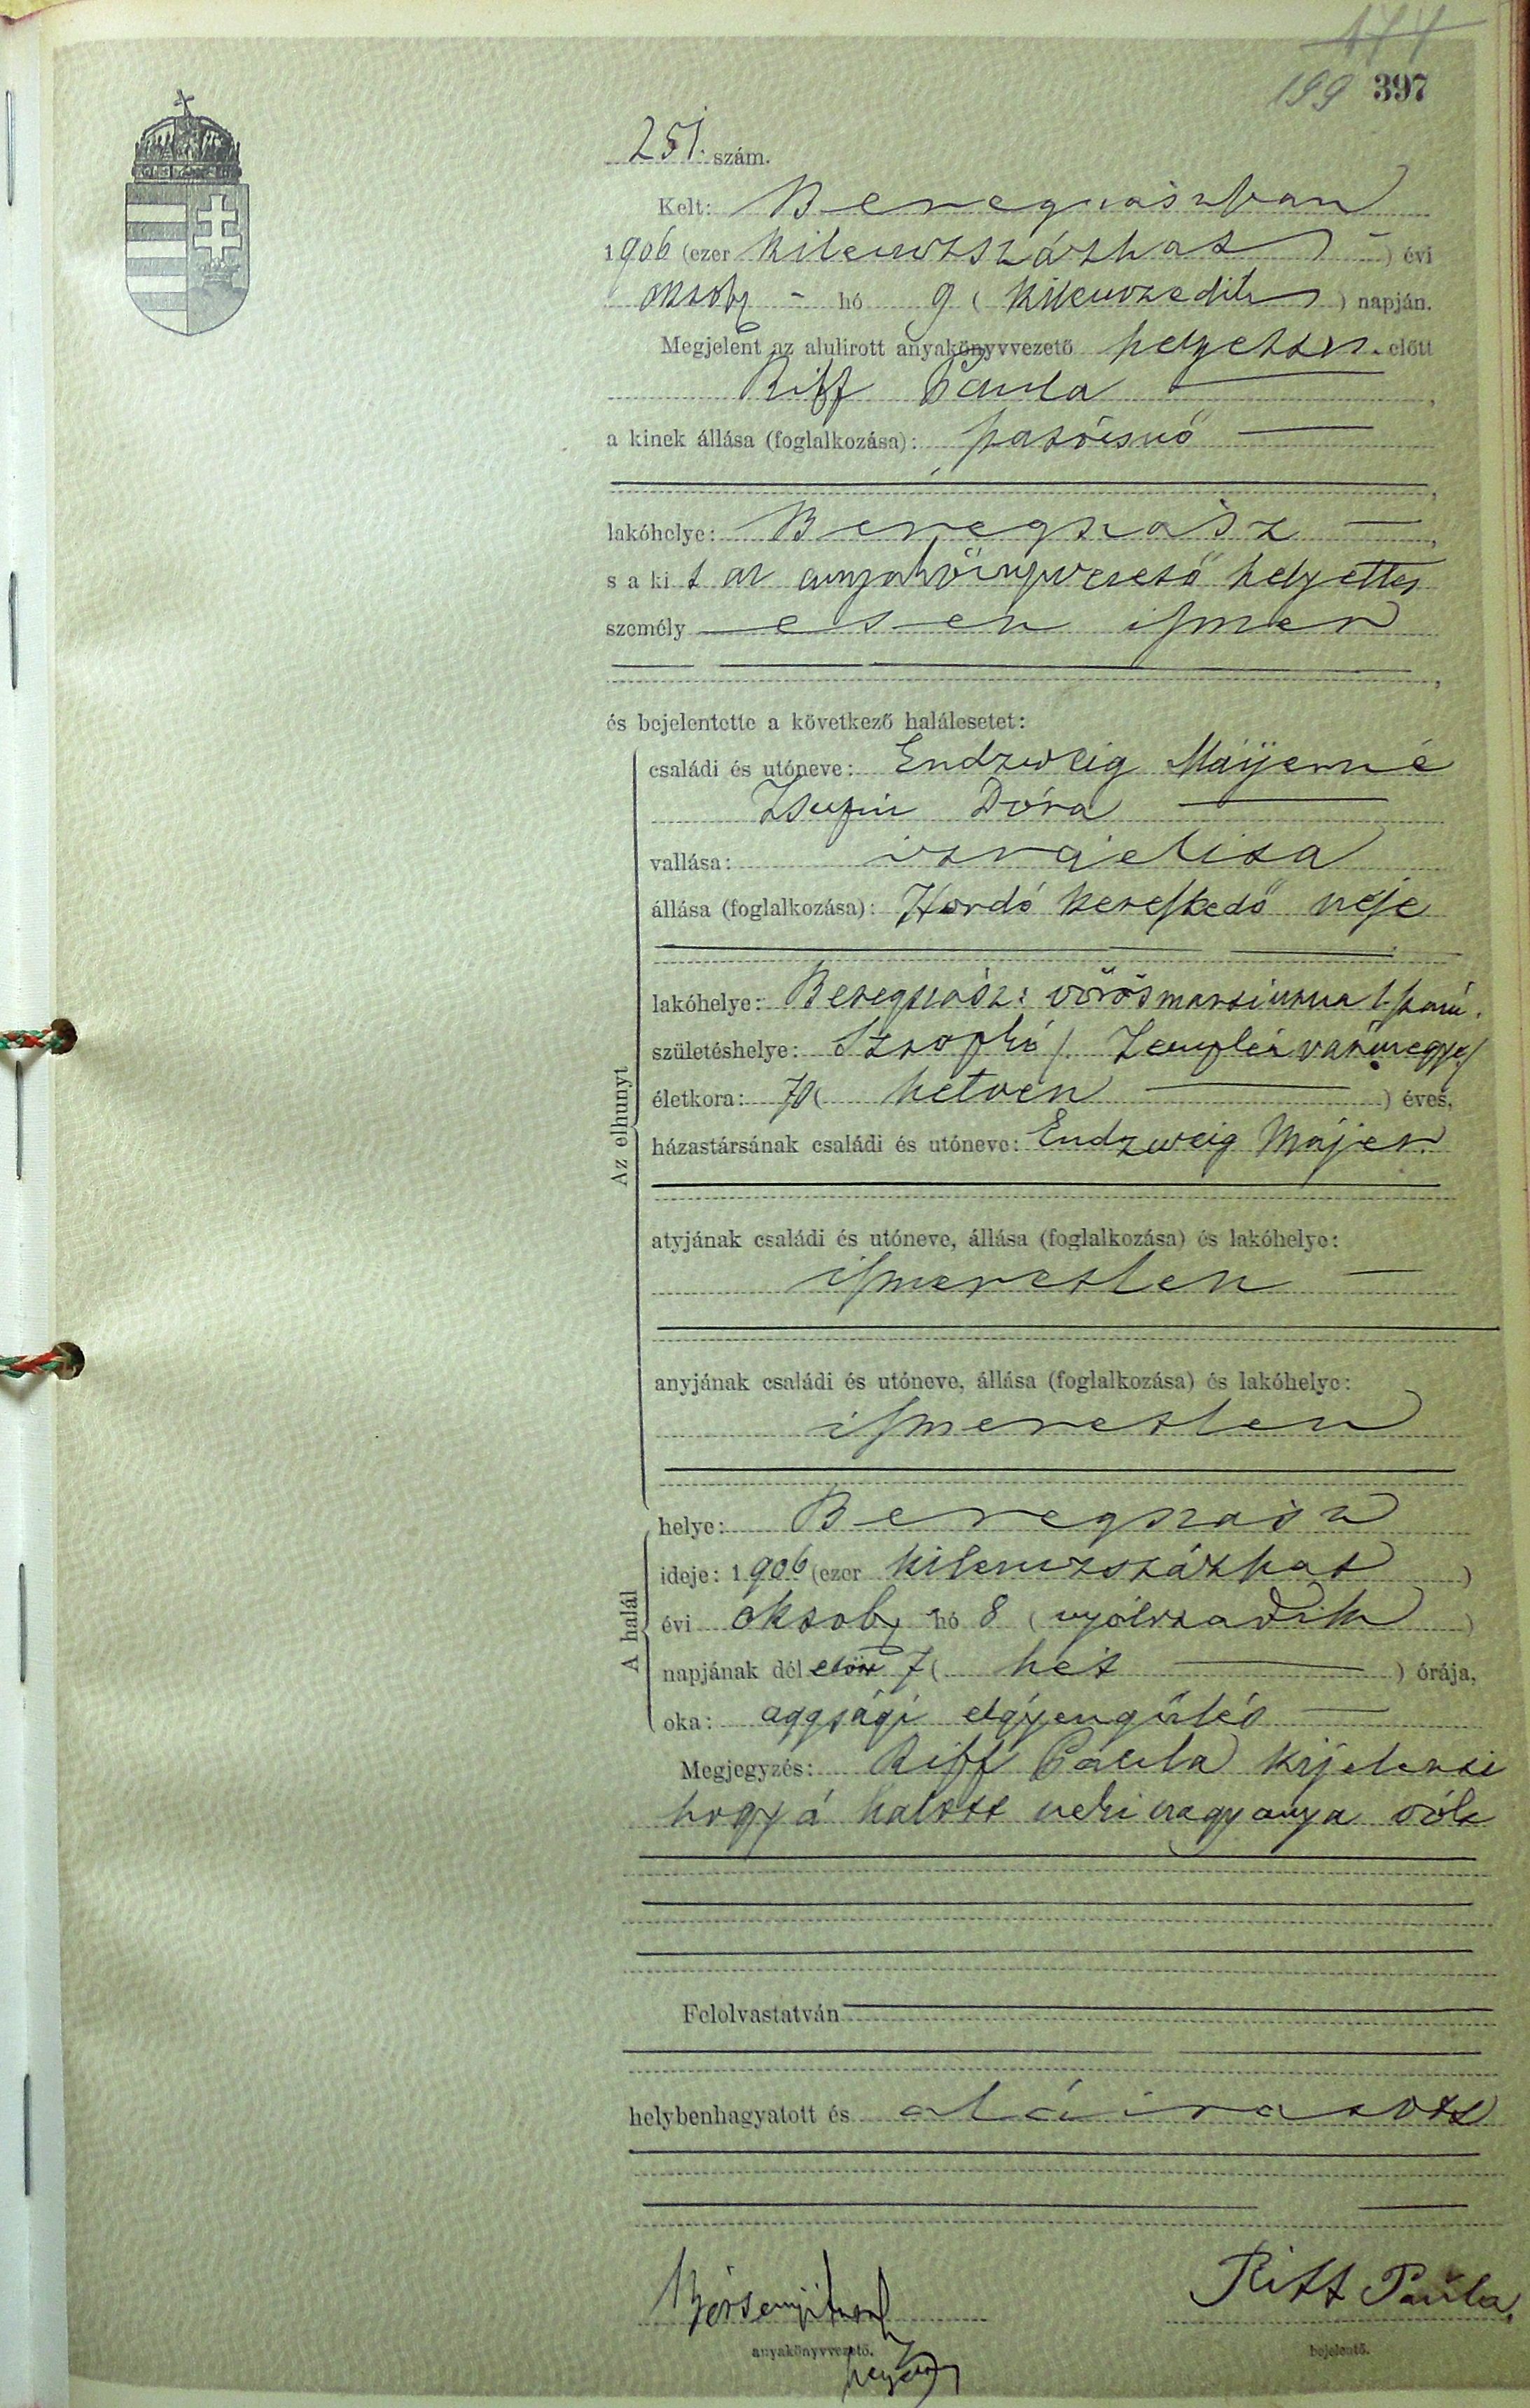 174
199 397
251. szám.
Kelt: Beregszászban
1906 (ezer kilenczszázhat) évi
októbr hó 9 (kilenczedik) napján.
Megjelent az alulirott anyakönyvvezető helyettes előtt
Riff Paula
a kinek állása (foglalkozása):
lakóhelye: Beregszász,
s a kit az anyakönyvvezető helyettes
személyesen ismer
és bejelentette a következő halálesetet:
Az elhunyt
családi és utóneve: Endzweig Májerné
Dóra
vallása: izraelita
állása (foglalkozása): Hordó kereskedő neje
lakóhelye: Beregszász: vörösmarti utcza
születéshelye: Sztropkó /. Zemplén vármegye/
életkora: 70 (hetven) éves,
házastársának családi és utóneve: Endzweig Májer.
atyjának családi és utóneve, állása (foglalkozása) és lakóhelye:
ismeretlen
anyjának családi és utóneve, állása (foglalkozása) és lakóhelye:
ismeretlen
A halál
helye: Beregszász
ideje: 1906 (ezer kilenczszázhat)
évi októbr hó 8 (nyolczadik)
napjának délelőtt 7 (hét) órája,
oka: aggsági elgyengülés
Megjegyzés: Riff Paula kijelenti
hogy á halott neki nagyanya vólt
Felolvastatván
helybenhagyatott és aláiratott
Riff Paula,
anyakönyvvezető. bejelentő.